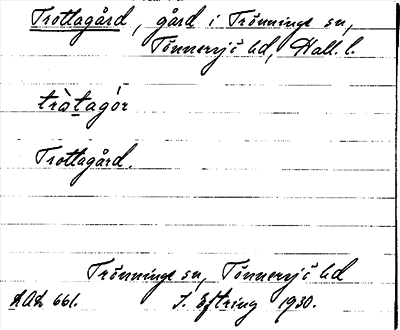 Trottagård, gård i Trönninge sn,
Tönnersjö hd, Hall. l.
tràtagór
Trottagård.
Trönninge sn, Tönnersjö hd
A.Ax 661. I. Eftring 1930.